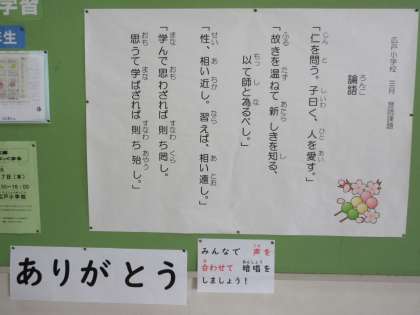 広戸小学校 三月
論語
「仁を問う。子曰く、人を愛す。」
「故きを温ねて新しきを知る、
以て師と為るべし。」
「性、相い近し。習えば、相い遠し。」
「学んで思わざれば則ち罔し。
思うて学ばざれば則ち殆し。」
学習
年生
7日(木)
ありがとう
みんなで 声を
合わせて 暗唱を
しましょう!